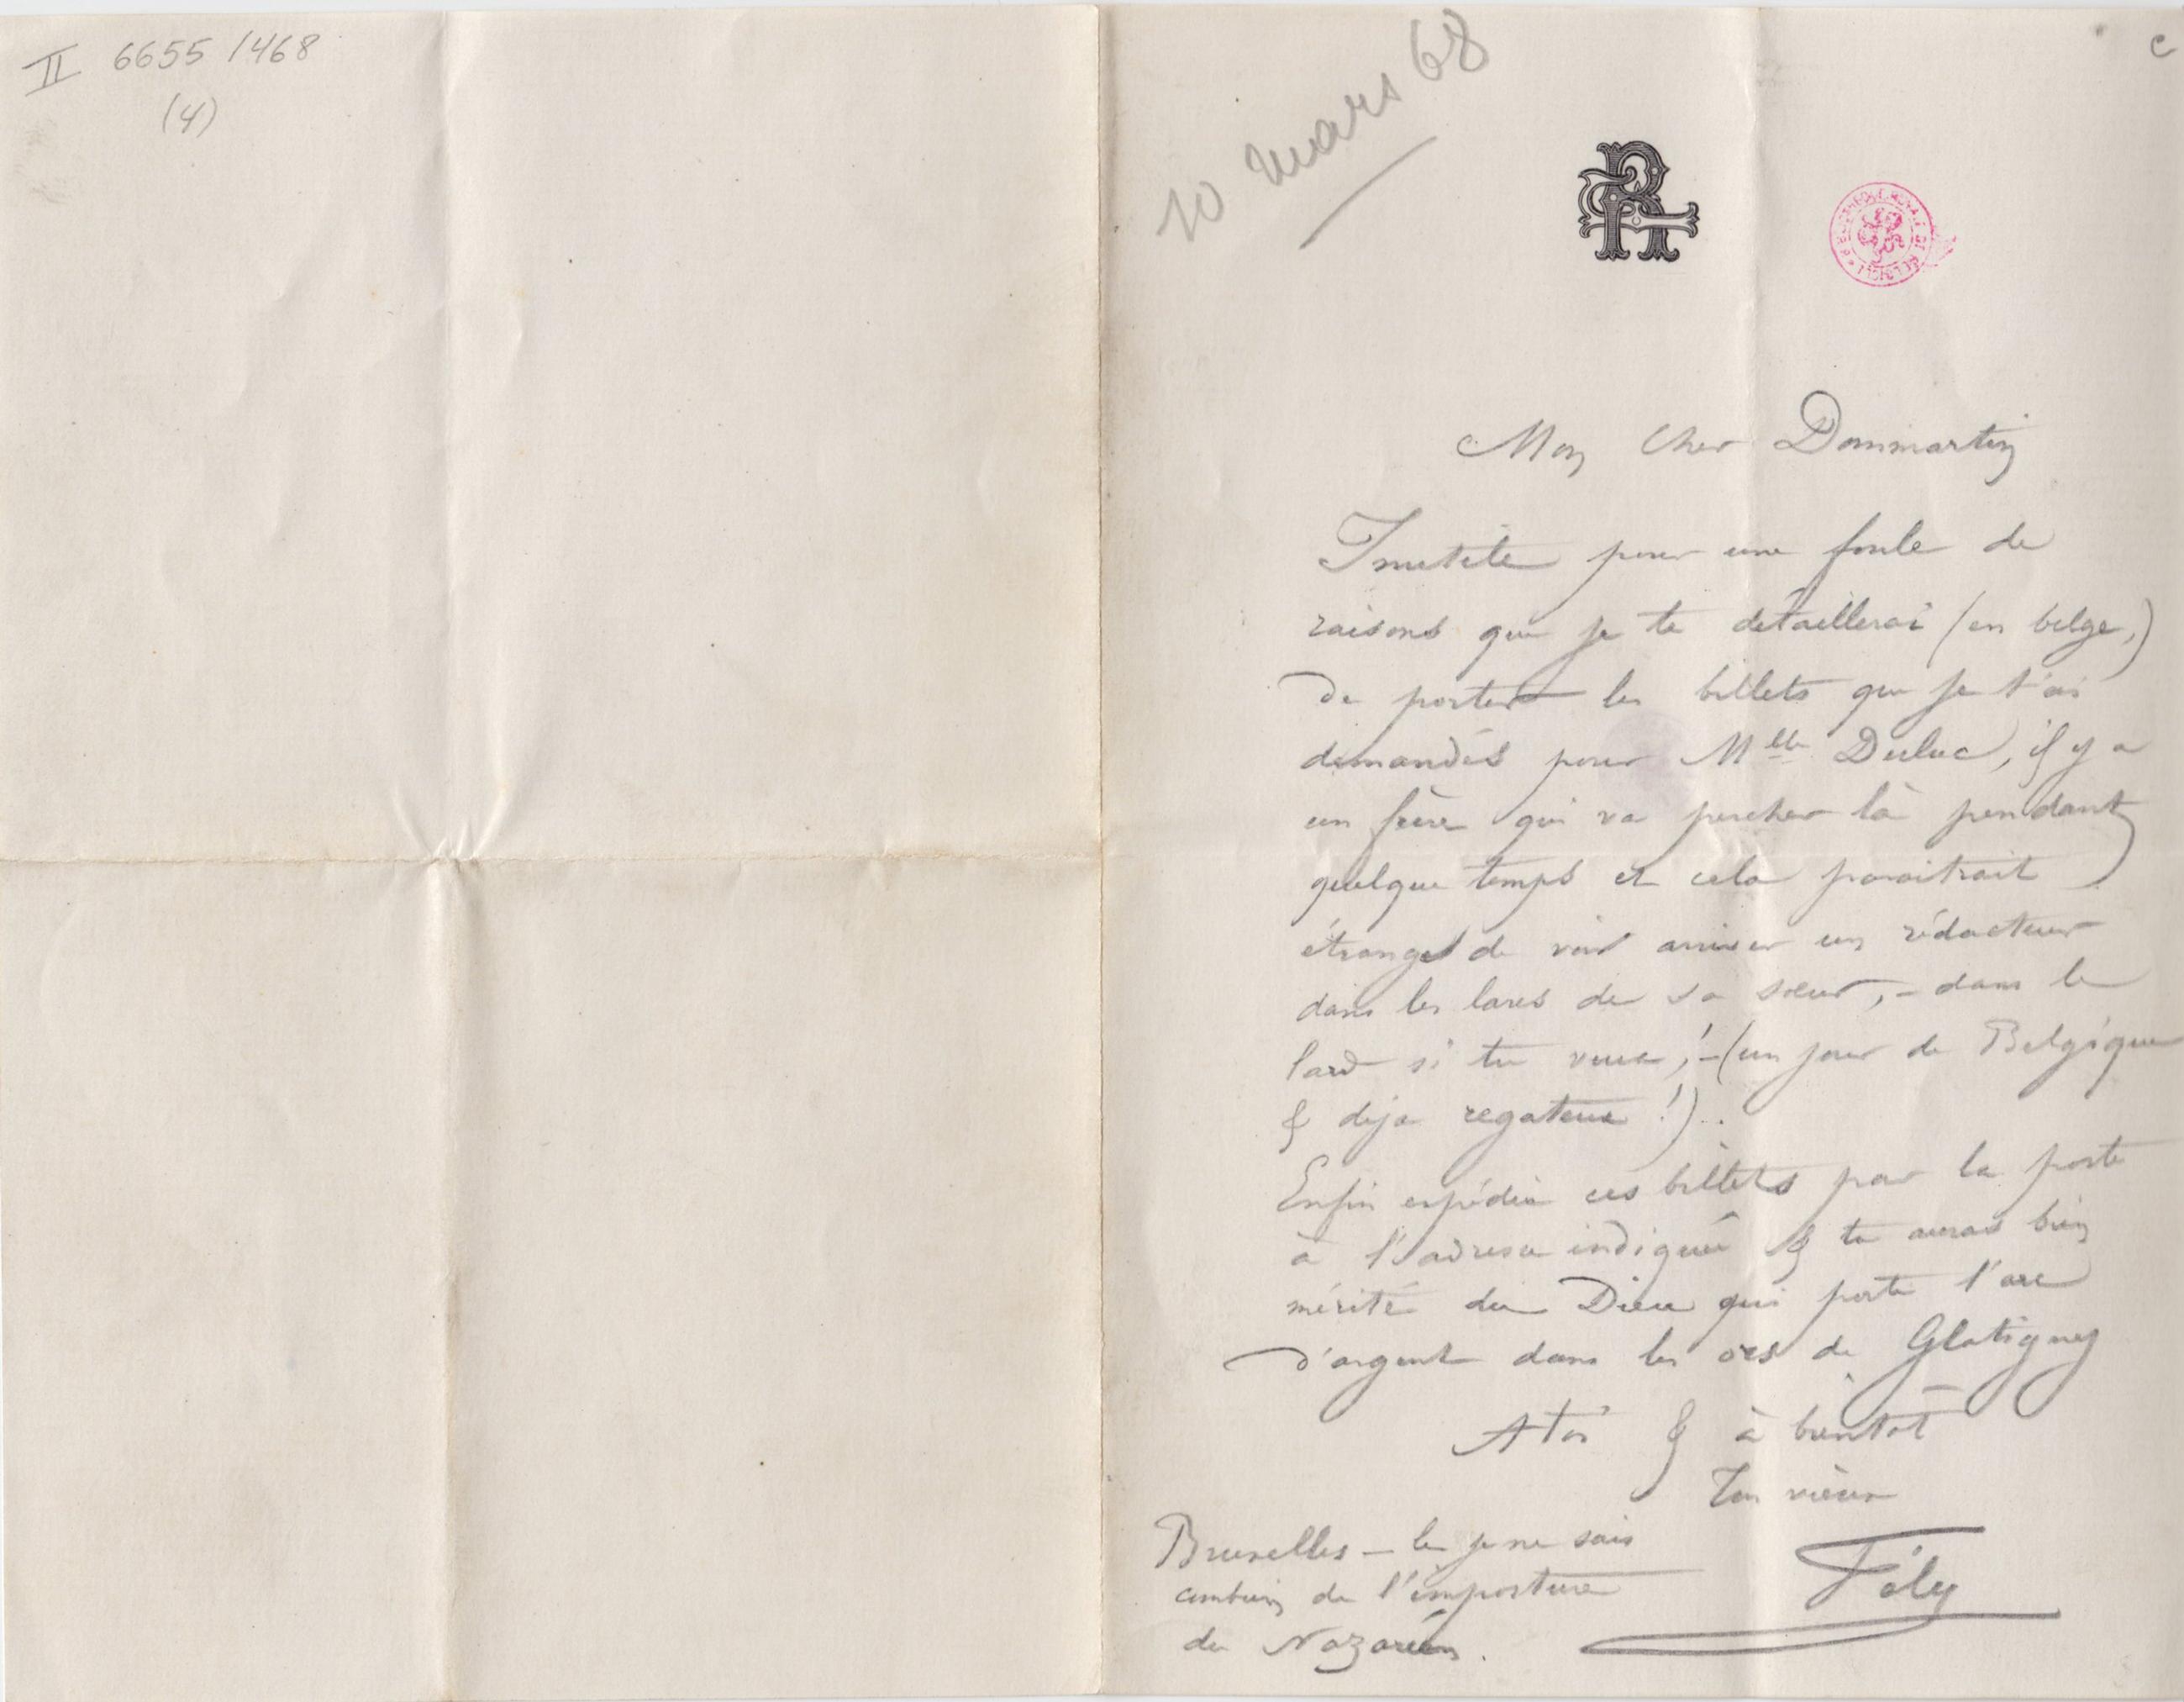 II 6655 / 468
(4)
10 mars 68
e
R
BIBLIOTHÈQUE ROYALE DE BELGIQUE
Mon Cher Dommartin
Inutile pour une foule de
raisons que je te détaillerai (en belge,)
de porter les billets que je t'ai
demandés pour Mlle Duluc, il y a
un frère qui va percher là pendant
quelque temps et cela paraitrait
étrange de voir arriver un rédacteur
dans les lares de sa sœur, – dans le
lard si tu veux, ! – (un jour de Belgique
& deja regateux !) ..
Enfin expédie ces billets par la poste
à l'adresse indiquée & tu auras bien
mérité du Dieu qui porte l'arc
d'argent dans les ors de Glatigny
A toi & à bientôt
Ton vieux
Fély
Bruxelles – le je ne sais
combien de l'imposture
du Nazaréen.